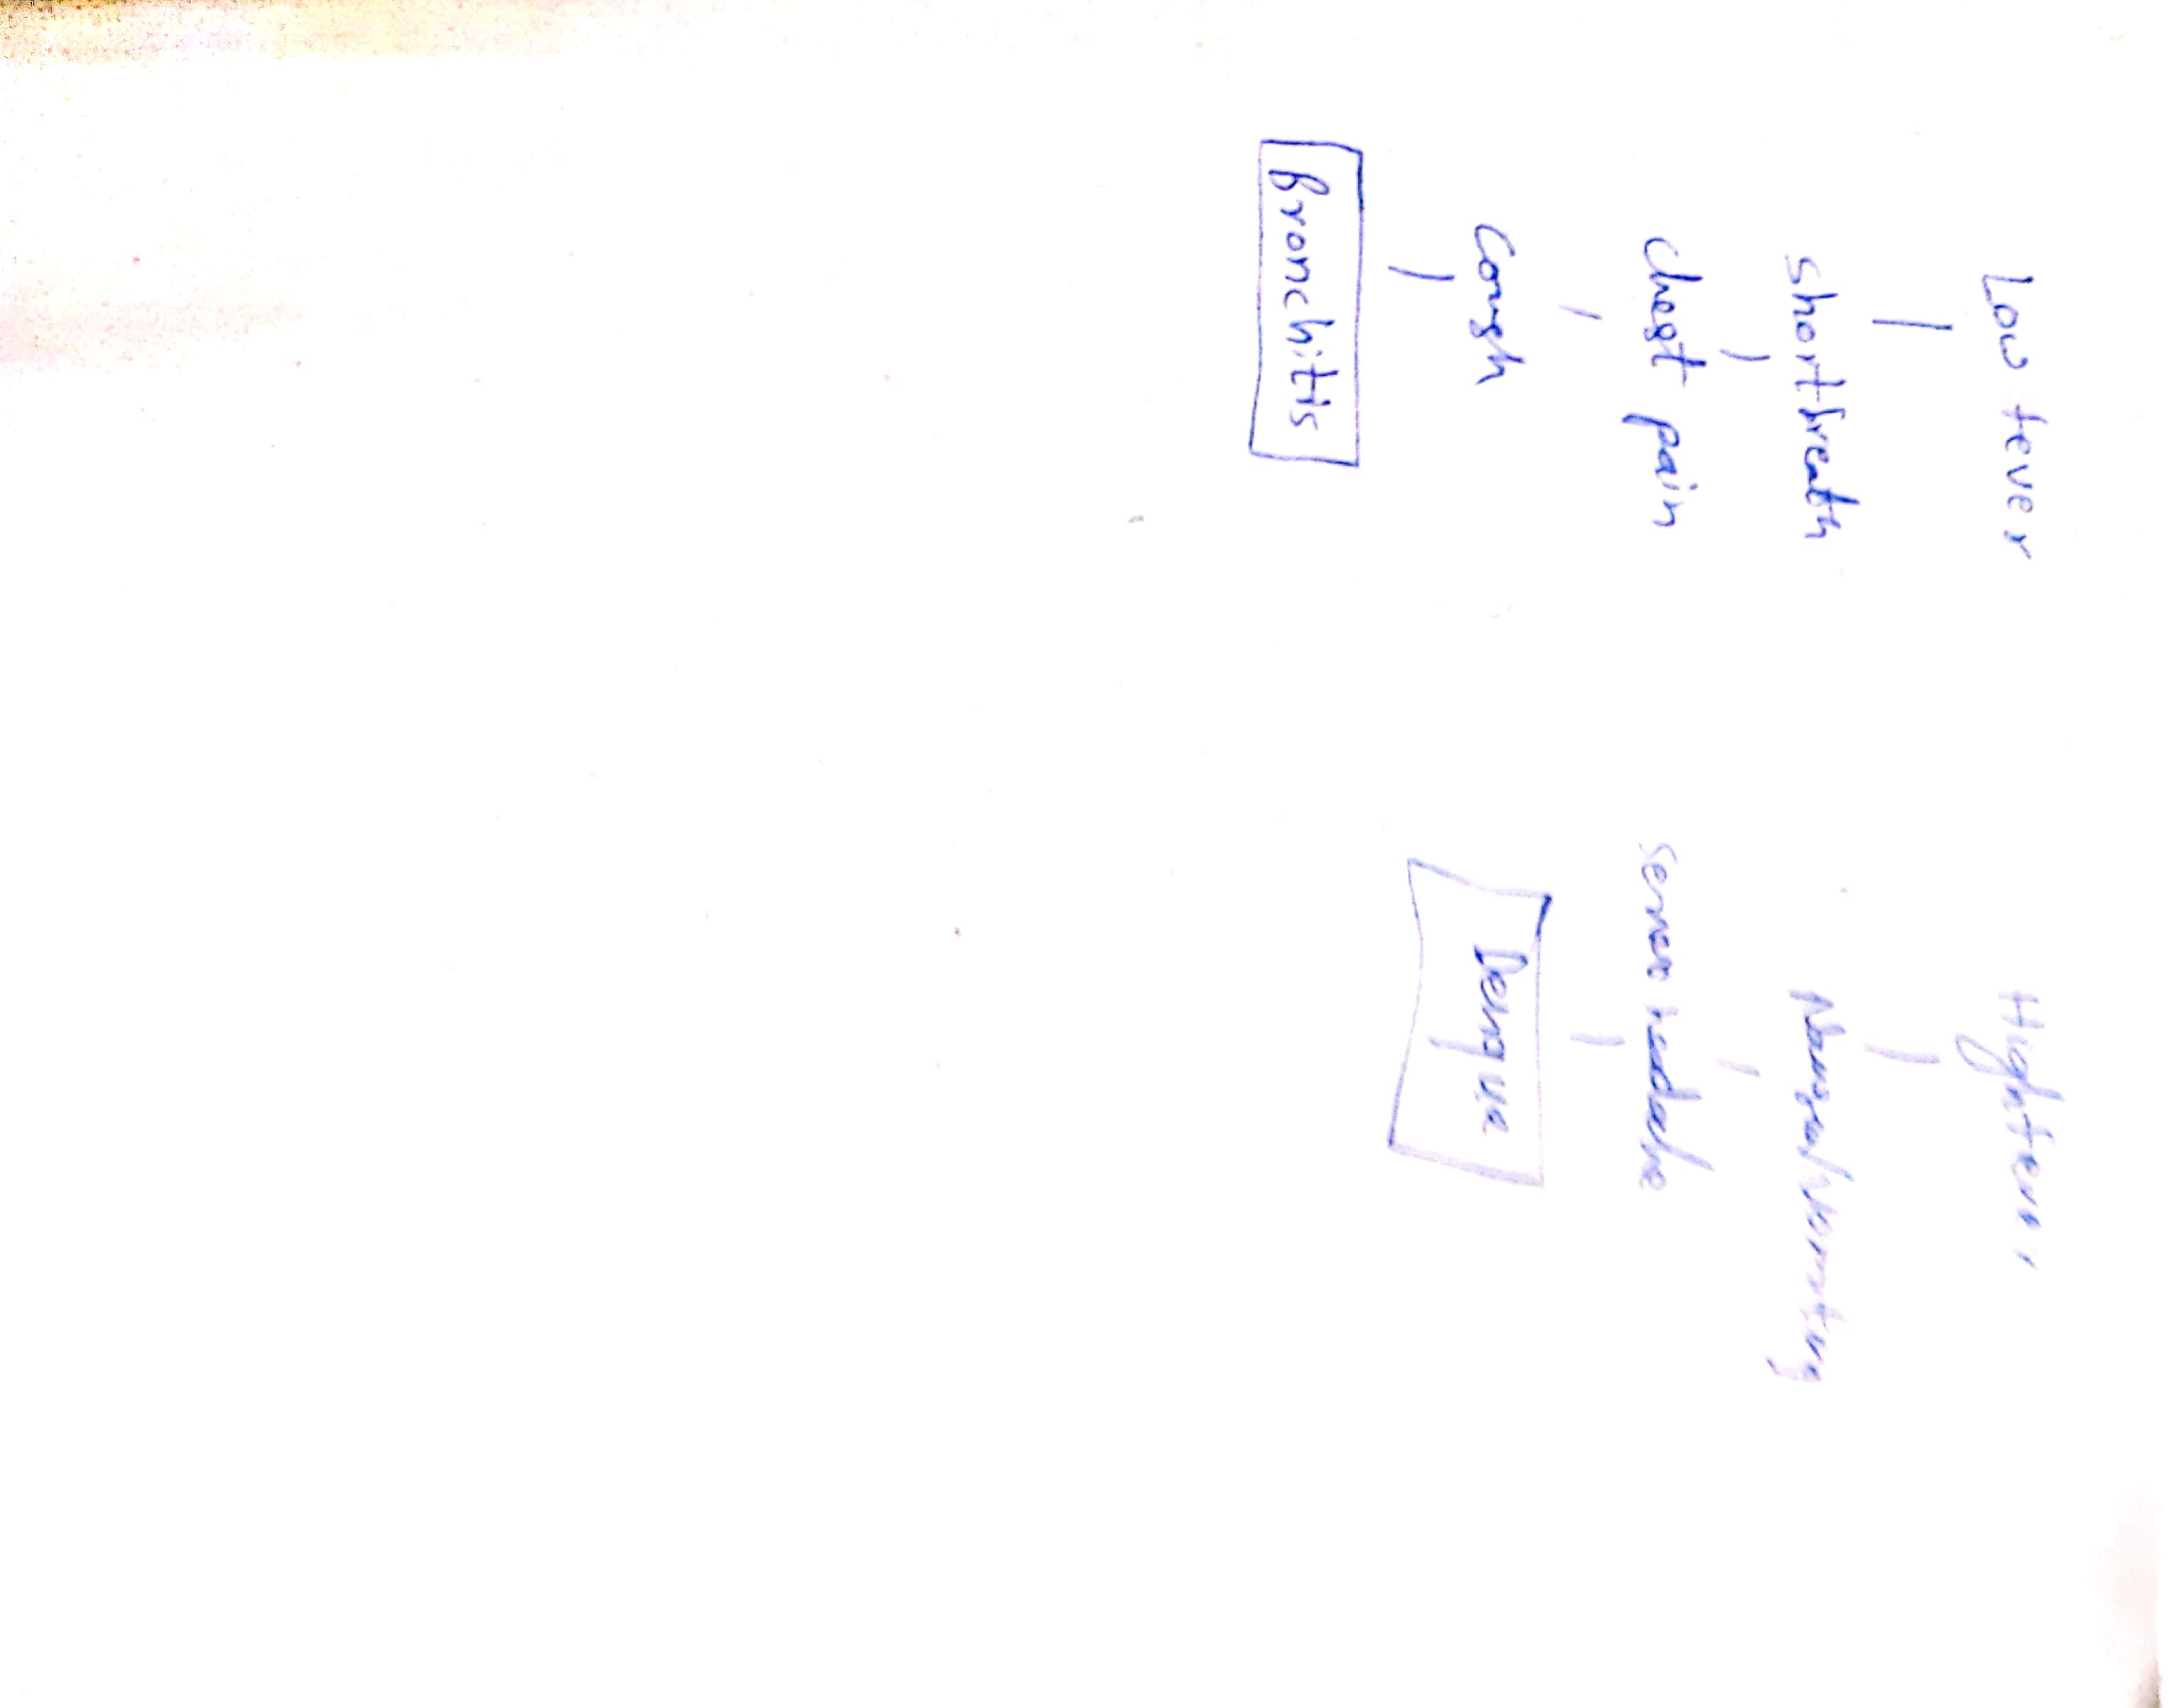 Low fever
shortbreath
chest pain
Cough
Bronchitis
High fever
Nausea/Vomiting
server headache
Dengue